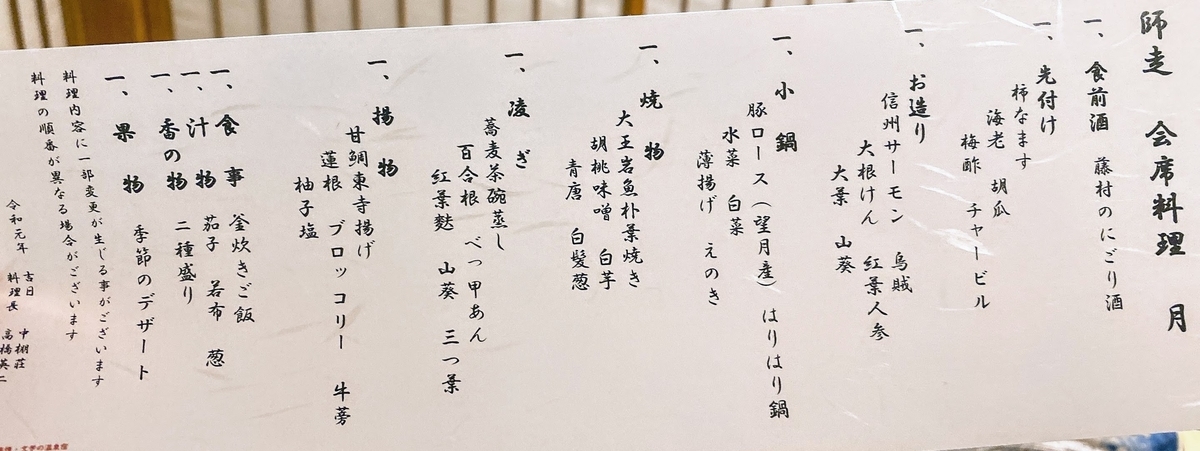 師走 会席料理 月
一、食前酒 藤村のにごり酒
一、先付け
柿なます
海老 胡瓜
梅酢 チャービル
一、お造り
信州サーモン 烏賊
大根けん 紅葉人参
大葉 山葵
一、小鍋
豚ロース(望月産)はりはり鍋
水菜 白菜
薄揚げ えのき
一、焼物
大王岩魚朴葉焼き
胡桃味噌 白芋
青唐 白髪葱
一、凌ぎ
蕎麦茶碗蒸し
百合根 べっ甲あん
紅葉麩 山葵 三つ葉
一、揚物
甘鯛東寺揚げ
蓮根 ブロッコリー 牛蒡
柚子塩
一、食事 釜炊きご飯
一、汁物 茄子 若布 葱
一、香の物 二種盛り
一、果物 季節のデザート
料理内容に一部変更が生じる事がございます
料理の順番が異なる場合がございます
令和元年 吉日 中棚荘
料理長 高橋英二
文学の温泉宿